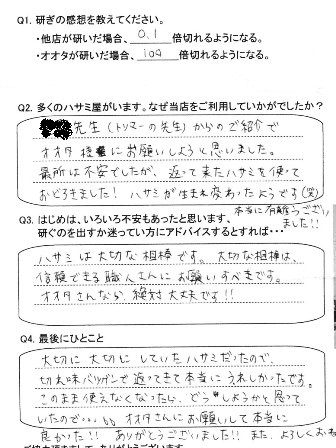 Q1. 研ぎの感想を教えてください。
・他店が研いだ場合、 0.1 倍切れるようになる。
・オオタが研いだ場合、 100 倍切れるようになる。
Q2. 多くのハサミ屋がいます。なぜ当店をご利用していかがでしたか?
先生(トリマーの先生)からのご紹介で
オオタ様にお願いしようと思いました。
最所は不安でしたが、返って来たハサミを使って
おどろきました! ハサミが生まれ変わったようです(笑)
本当に有難うござい
ました!!
Q3. はじめは、いろいろ不安もあったと思います、
研ぐのを出すか迷っている方にアドバイスするとすれば・・・
ハサミは大切な相棒です。大切な相棒は、
信頼できる職人さんにお願いすべきです。
オオタさんなら、絶対大丈夫です!!
Q4. 最後にひとこと
大切に大切にしていたハサミだったので、
切れ味バツグンで返ってきて本当にうれしかったです。
このまま使えなくなったら、どうしようかと思って
いたので・・・。オオタさんにお願いして本当に
良かった!! ありがとうございました!! また、よろしくお